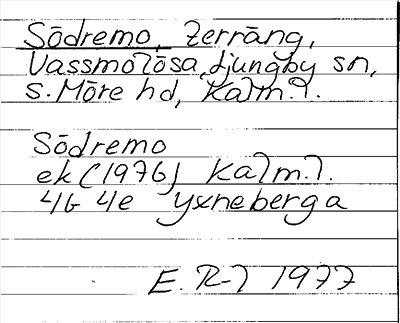 Södremo, terräng,
Vassmolösa, Ljungby sn,
S. Möre hd, Kalm. l.
Södremo
ek (1976) Kalm. l.
4G 4e Yxneberga
E. R-l 1977